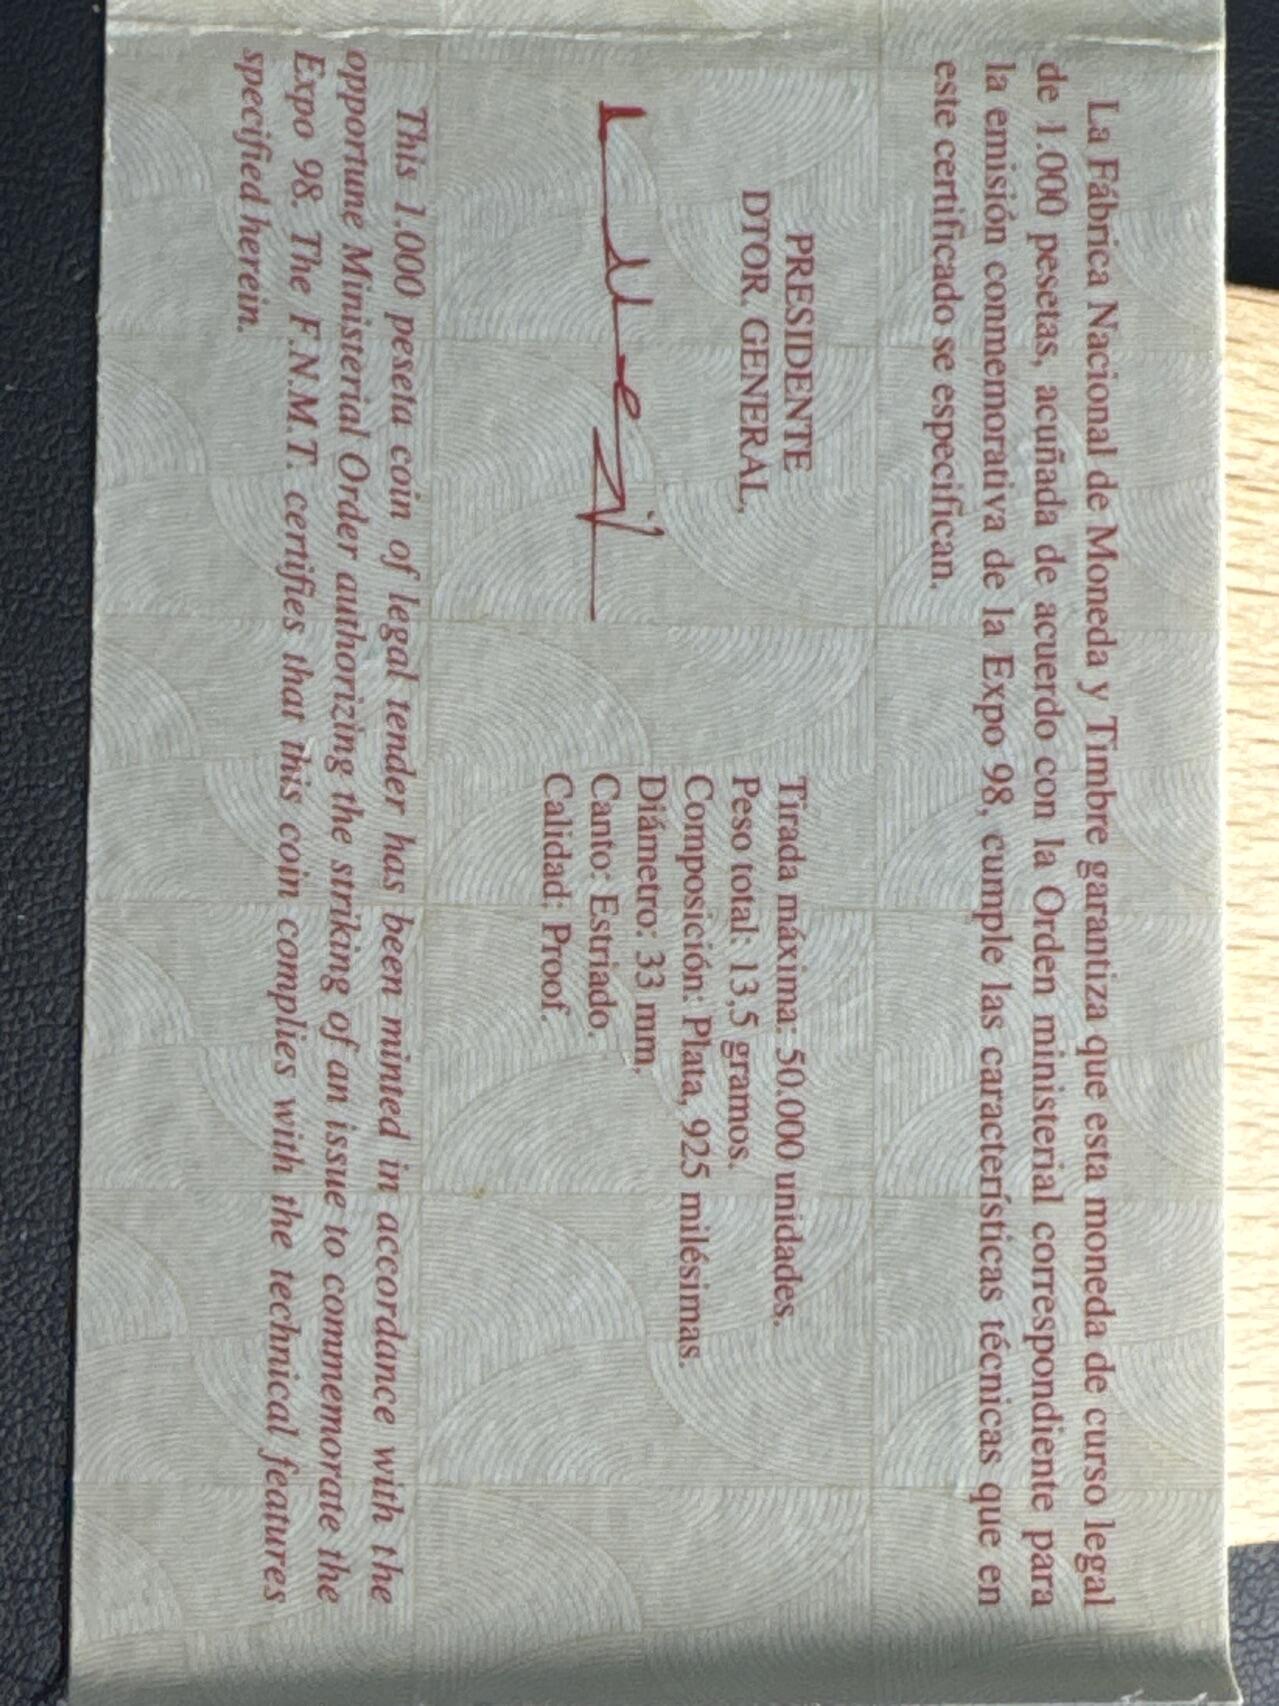 La Fábrica Nacional de Moneda y Timbre garantiza que esta moneda de curso legal
de 1.000 pesetas, acuñada de acuerdo con la Orden ministerial correspondiente para
la emisión conmemorativa de la Expo 98, cumple las características técnicas que en
este certificado se especifican.
PRESIDENTE
DTOR. GENERAL,
Tirada máxima: 50.000 unidades.
Peso total: 13,5 gramos.
Composición: Plata, 925 milésimas.
Diámetro: 33 mm.
Canto: Estriado.
Calidad: Proof.
This 1.000 peseta coin of legal tender has been minted in accordance with the
opportune Ministerial Order authorizing the striking of an issue to commemorate the
Expo 98. The F.N.M.T. certifies that this coin complies with the technical features
specified herein.